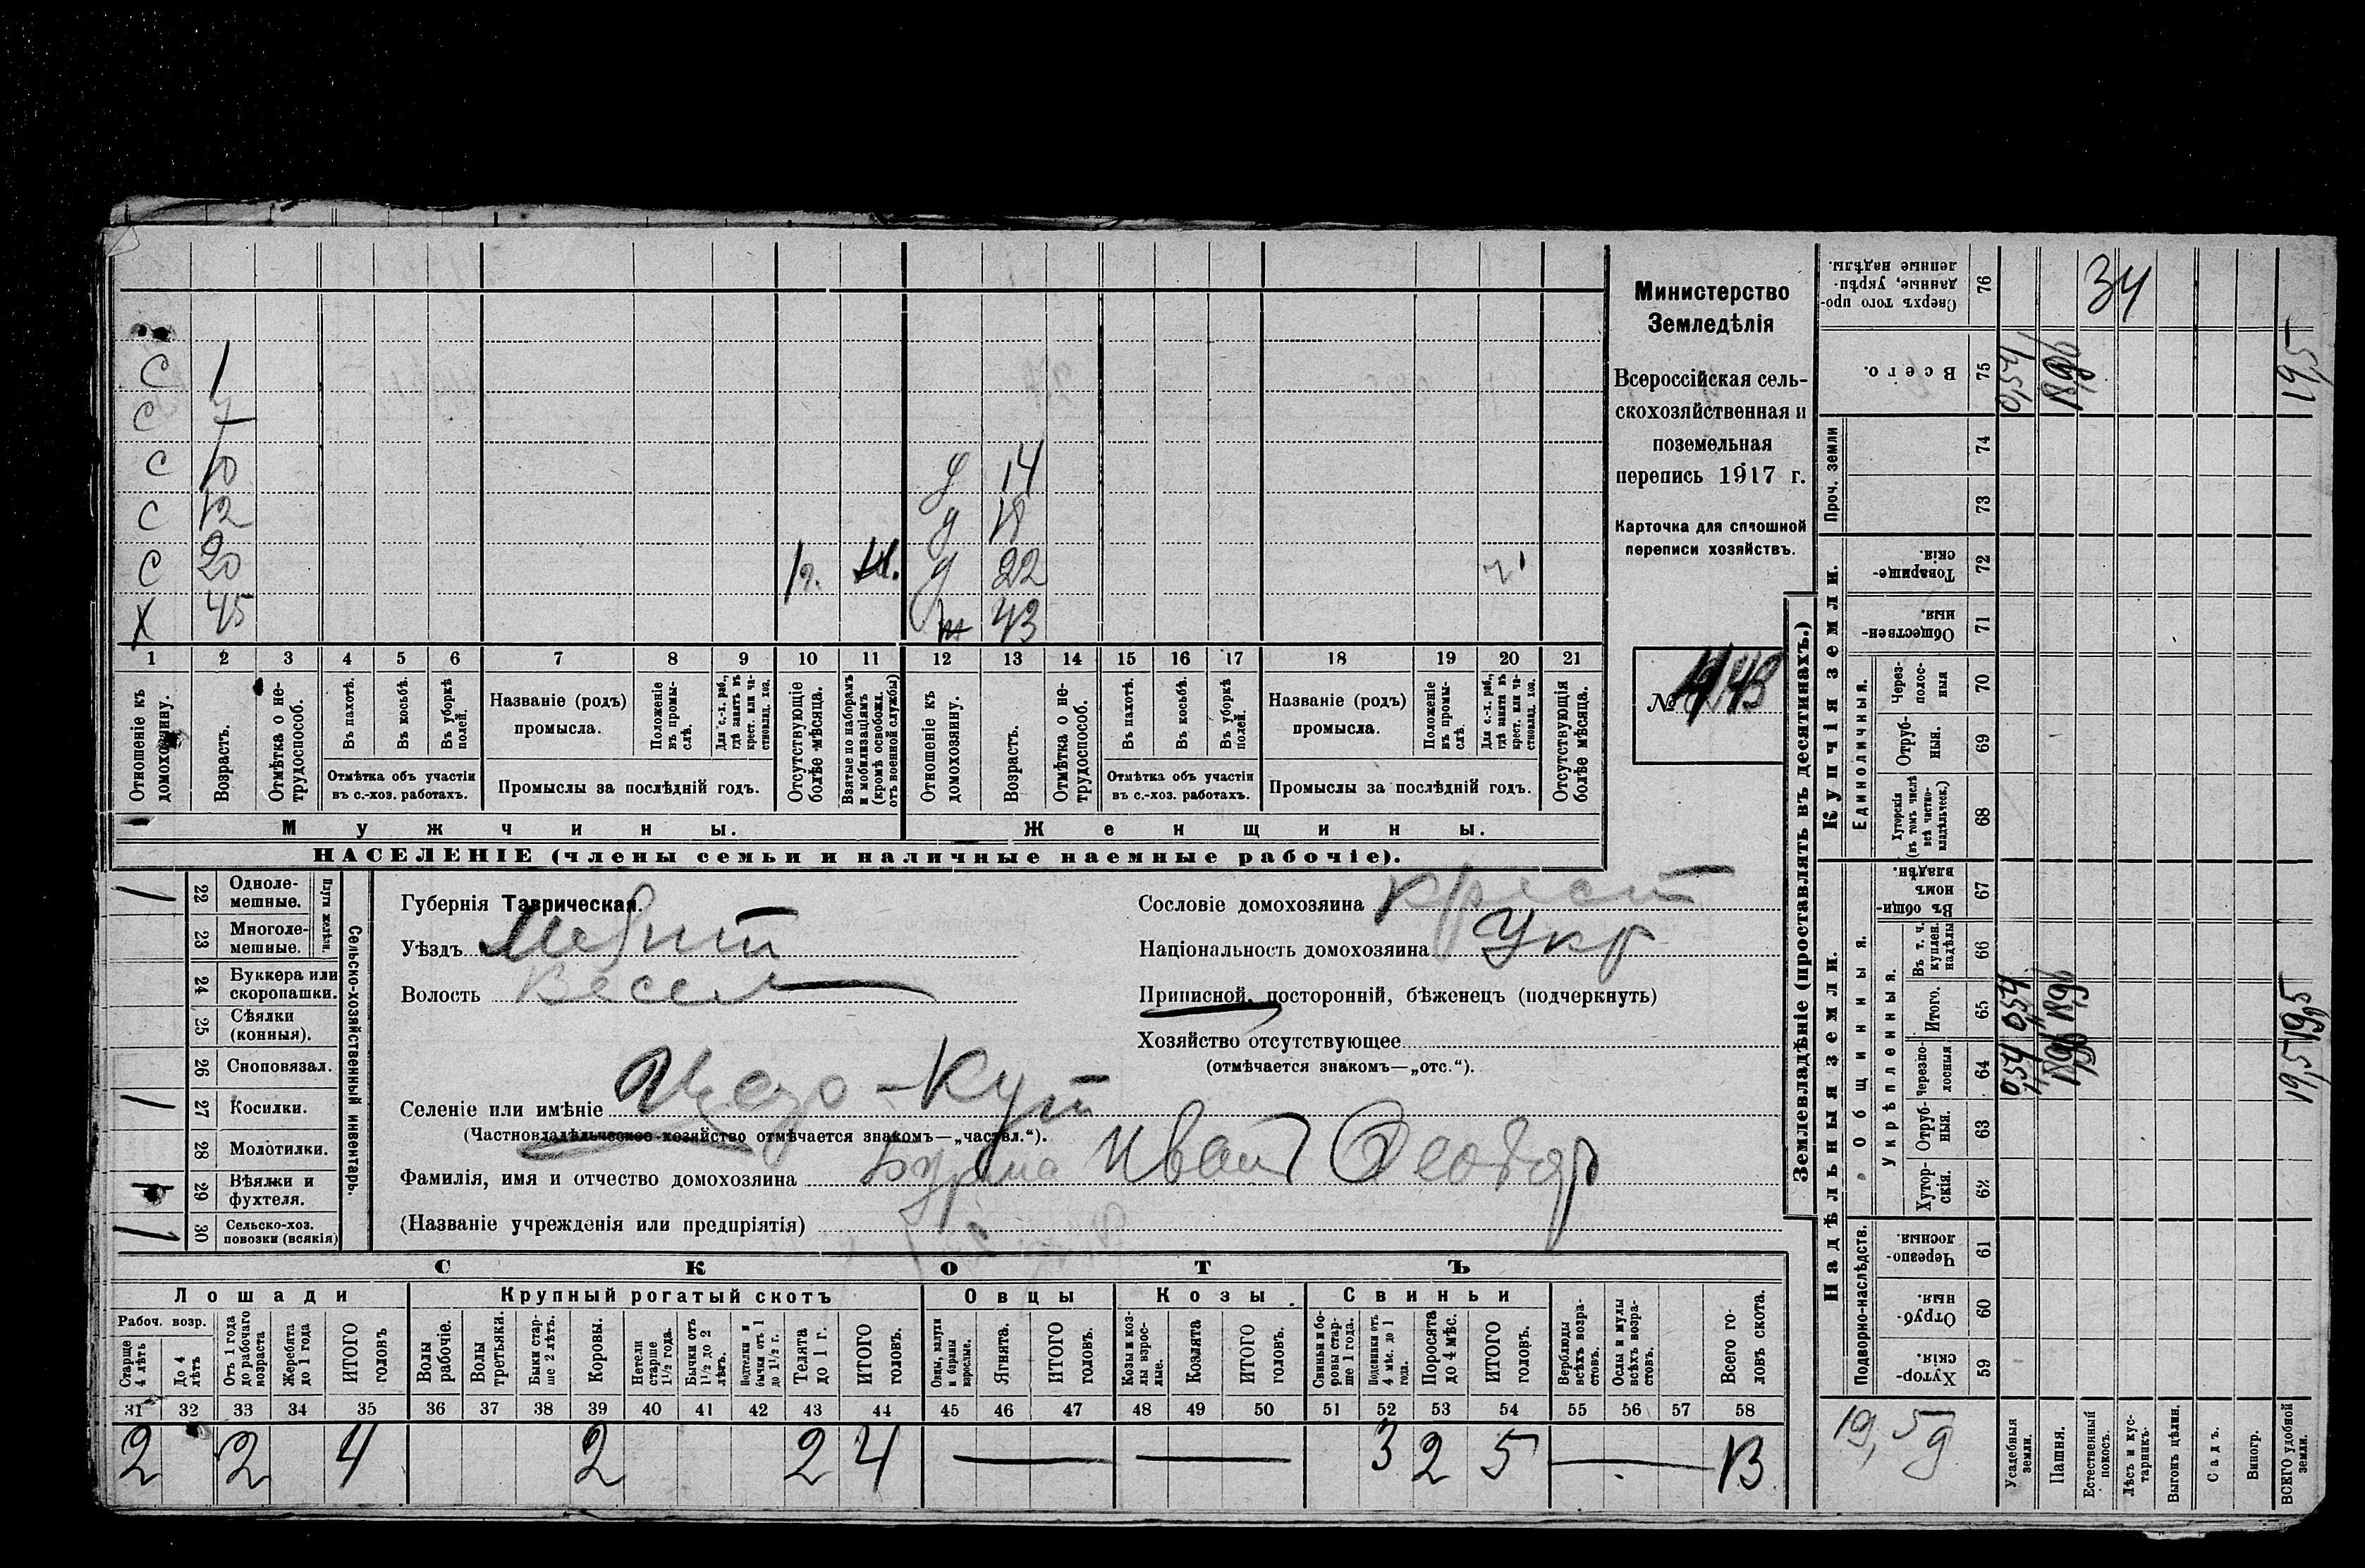 С 1
С 7
С 10 д 14
С 12 д 18
С 20 д 22
Х 45 43
1 2 3 4 5 6 7 8 9 10 11 12 13 14 15 16 17 18 19 20 21
Отношеніе къ домохозяину.
Возрастъ.
Отмѣтка о не-трудоспособ.
Въ пахотѣ.
Въ косьбѣ.
Въ уборкѣ полей.
Отмѣтка объ участіи
въ с.-хоз. работахъ.
Названіе (родъ)
промысла.
Положеніе въ промы-слѣ.
Для с.-х. раб., гдѣ занятъ въ крест. или ча-стновлад. хоз.
Промыслы за послѣдній годъ.
Отсутствующіе болѣе мѣсяца.
Взятые по наборамъ и мобилизаціямъ (кромѣ освобожд. отъ военной службы)
Отношеніе къ домохозяину.
Возрастъ.
Отмѣтка о не-трудоспособ.
Въ пахотѣ.
Въ косьбѣ.
Въ уборкѣ полей.
Отмѣтка объ участіи
въ с.-хоз. работахъ.
Названіе (родъ)
промысла.
Положеніе въ промы-слѣ.
Для с.-х. раб., гдѣ занята въ крест. или ча-стновлад. хоз.
Промыслы за послѣдній годъ.
Отсутствующія болѣе мѣсяца.
Мужчины. Женщины.
НАСЕЛЕНІЕ (члены семьи и наличные наемные рабочіе).
Министерство
Земледѣлія
Всероссійская сель-
скохозяйственная и
поземельная
перепись 1917 г.
Карточка для сплошной
переписи хозяйствъ.
№
22 Одноле-мешные.
23 Многоле-мешные.
Плуги желѣзн.
24 Буккера или скоропашки.
25 Сѣялки (конныя).
26 Сноповязал.
27 Косилки.
28 Молотилки.
29 Вѣялки и фухтеля.
30 Сельско-хоз. повозки (всякія)
Сельско-хозяйственный инвентарь.
Губернія Таврическая.
Уѣздъ Мелит
Волость Весел
Селеніе или имѣніе
(Частновладѣльческое хозяйство отмѣчается знакомъ—„частвл.“).
Фамилія, имя и отчество домохозяина Бурма Иван Феодор
(Названіе учрежденія или предпріятія)
Сословіе домохозяина крест
Національность домохозяина Укр
Приписной, посторонній, бѣженецъ (подчеркнуть)
Хозяйство отсутствующее
(отмѣчается знакомъ—„отс.“).
СКОТЪ
Лошади Крупный рогатый скотъ Овцы Козы Свиньи
Рабоч. возр.
Старше 4 лѣтъ
До 4 лѣтъ
Отъ 1 года до рабочаго возраста
Жеребята до 1 года
ИТОГО головъ
Волы рабочіе.
Волы третьяки.
Быки стар-ше 2 лѣтъ.
Коровы.
Нетели старше 1½ года.
Бычки отъ 1½ до 2 лѣтъ.
Подтелки и бычки отъ 1 до 1½ г.
Телята до 1 г.
ИТОГО головъ.
Овцы, валухи и бараны взрослые.
Ягнята.
ИТОГО головъ.
Козы и коз-лы взрос-лые.
Козлята
ИТОГО головъ.
Свиньи и бо-ровы стар-ше 1 года.
Подсвинки отъ 4 мѣс. до 1 года.
Поросята до 4 мѣс.
ИТОГО головъ.
Верблюды всѣхъ возра-стовъ.
Ослы и мулы всѣхъ возра-стовъ.
Всего го-ловъ скота.
31 32 33 34 35 36 37 38 39 40 41 42 43 44 45 46 47 48 49 50 51 52 53 54 55 56 57 58
2 2 4 2 2 4 — — 3 2 5 — 13
Землевладѣніе (проставлять въ десятинахъ.)
Надѣльныя земли. Купчія земли. Проч. земли
Подворно-наслѣдств.
Общинныя.
Укрѣпленныя.
Единоличныя.
Хутор-скія. 59
Отруб-ныя. 60
Черезпо-лосныя. 61
Хутор-скія. 62
Отруб-ныя. 63
Черезпо-лосныя 64
Итого. 65
Въ т. ч. куплен. надѣлы 66
Въ общин-номъ владѣн. 67
Хуторскія (въ томъ числѣ всѣ частно-владѣльческ.) 68
Отруб-ныя. 69
Через-полос-ныя 70
Обществен-ныя. 71
Товарище-скія. 72
73
74
Всего. 75
Сверхъ того про-данные, укрѣп-ленные надѣлы. 76
19,5 д
Усадебныя земли. 0,54 0,54 0,54
Пашня. 18,96 18,96 18,96
Естественный покосъ.
34
Лѣсъ и кус-тарникъ.
Выгонъ цѣлин.
Садъ.
Виногр.
ВСЕГО удобной земли. 19,5 19,5 19,5